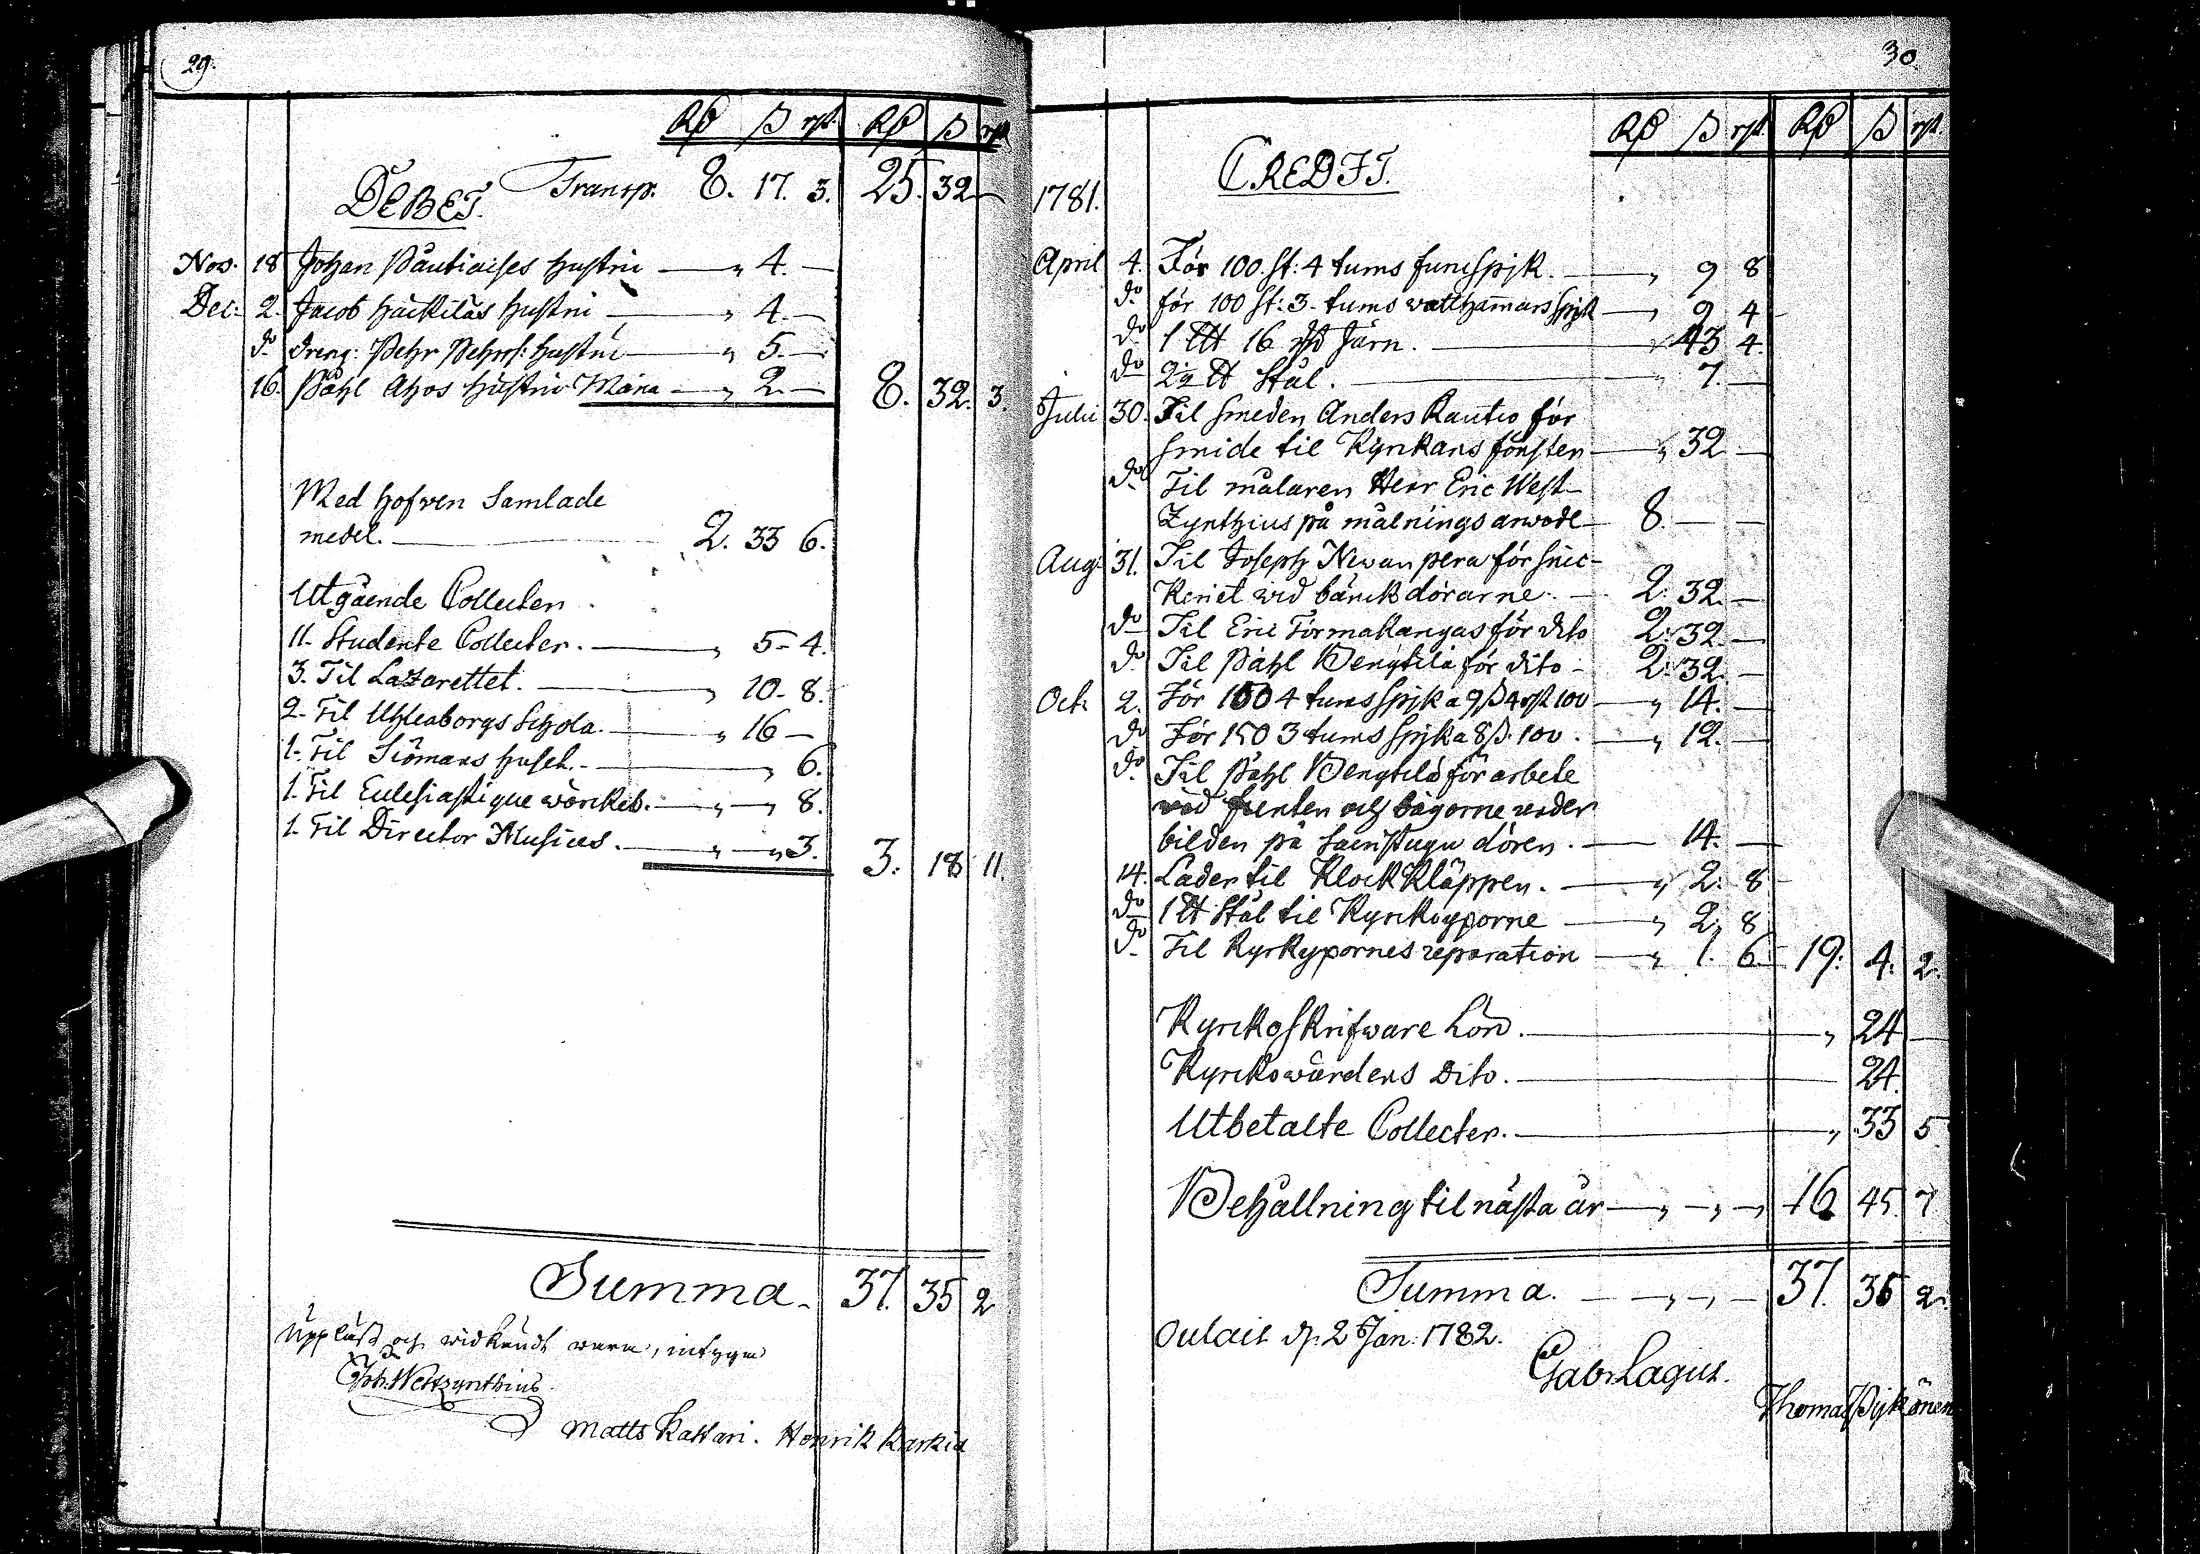 29.
Rd ß rst. Rd ß rst
DEBET. Transp. 8. 17. 3. 25. 32 —
Nov. 18 Johan Pautiaises hustru — " 4. —
Dec: 2. Jacob Häckiläs hustru — " 4. —
do dreng: Pehr Pehrss: hustru — " 5. —
16. Påhl Ahos hustru Maria — " 2. — 8. 32. 3.
Med hofven Samlade
medel. — 2. 33 6.
Utgående Collecten
11. Studente Collecter. — " 5 - 4.
3. Til Lazarettet. — " 10 - 8.
2. Til Uhleaborgs Schola. — " 16 —
1. Til Siömans huset. — " 6.
1. Til Eclesiastique wärcket. — " — " 8.
1. Til Director Musices. — " — " 3. 3. 18 11.
Summa. 37. 35 2
Uppläst och widkändt vara, intyga
Joh. Westzynthius
Matts Kattari. Henrik Karkia
30.
Rd ß rst Rd ß rst.
CREDIT.
1781.
April 4. För 100. st: 4 tums spik. — " 9 8
do för 100 st: 3. tums watthamars spik — " 9 4
do 1 L℔ 16 Järn. — " 43 4.
do 2½ ℔ Stål. — " 7. —
Julii 30. Til Smeden Anders Rautio för
smide til Kyrkans fönster — " 32 —
do Til målaren Herr Eric West-
zynthius på målnings arwode — 8. — —
Aug: 31. Til Joseph Nevanpera för snic-
keriet wid bänckdörarne. — 2. 32. —
do Til Eric Törmäkangas för dito 2. 32. —
do Til Påhl Bengtilä för dito — 2. 32. —
Oct: 2. För 150 4 tums spik a 9 ß 4 rst 100 — " 14. —
do För 150 3 tums spik a 8 ß. 100. — " 12. —
do Til Påhl Bengtilä för arbete
wid funten och bågorne under
bilden på dören. — 14. —
14. Läder til Klockkläppen. — " 2. 8
do 1 ℔ Stål til Kyrckoyxorne — " 2. 8
do Til Kyrkyxornes reparation — " 1. 6. 19. 4. 2.
Kyrckoskrifware Lön. — " 24 —
Kyrckowärdens Dito. — 24.
Utbetalte Collecter. — " 33 5.
Behållning til nästa år — " — " — " 16 45. 7
Summa. — " — " — 37. 35 2.
Oulais d. 2 Jan: 1782.
Gabr. Lagus.
Thomas Pykönen